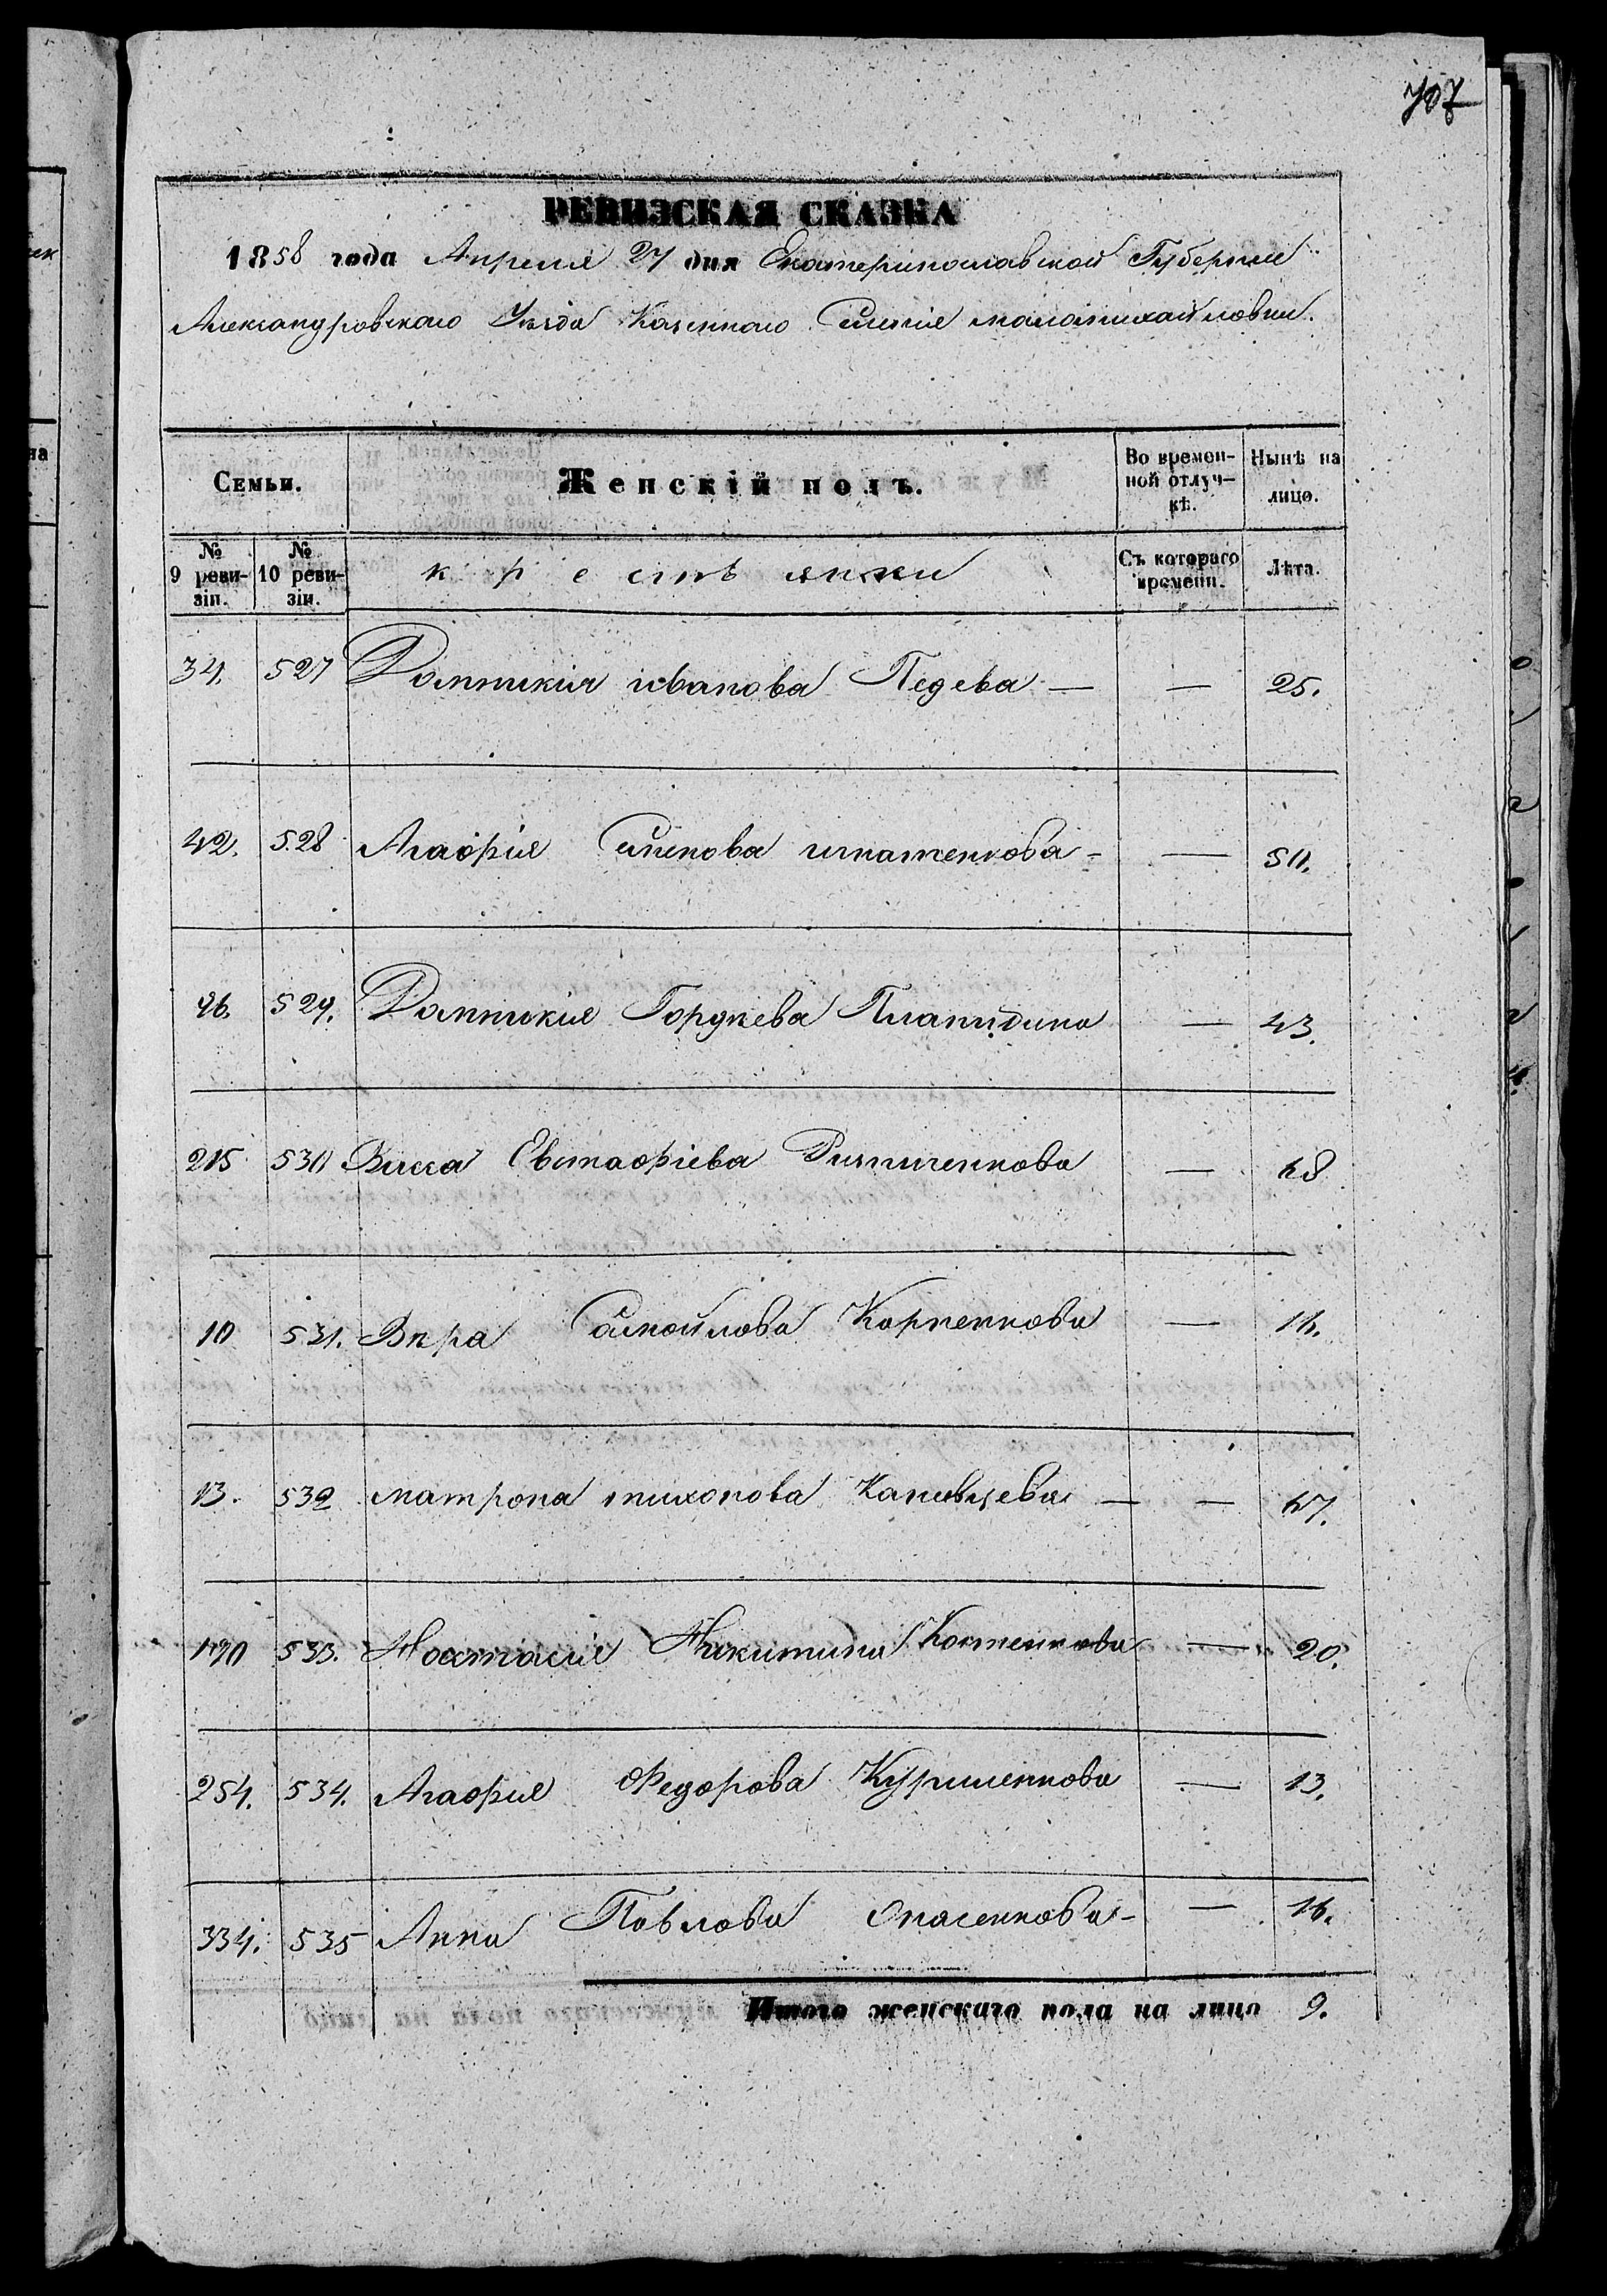 707
РЕВИЗСКАЯ СКАЗКА
1858 года Апреля 27 дня Екатеринославской Губернии
Александровского Уезда Казенного Селения маломихайловки.
Семьи. Женскій полъ. Во времен-ной отлуч-кѣ. Нынѣ на лицо.
№ 9 реви-зіи. № 10 реви-зіи. крестьянки Съ котораго времени. Лѣта.
34. 527 Домникия иванова Педева — — 25.
42. 528 Агафія Семенова игнатенкова - — 50.
96. 529. Домникия Гордеева — 43.
215 530 Васса Евстафіева — 48
10 531. Вера Самойлова Карпенкова — 16.
13. 532 матрона тихонова Каневцева — — 47.
190 533. Настасия Никитина Костенкова — 20.
254. 534. Агафия Федорова — 13.
334. 535 Анна Павлова Опасенкова - — 16.
Итого женскаго пола на лицо 9.